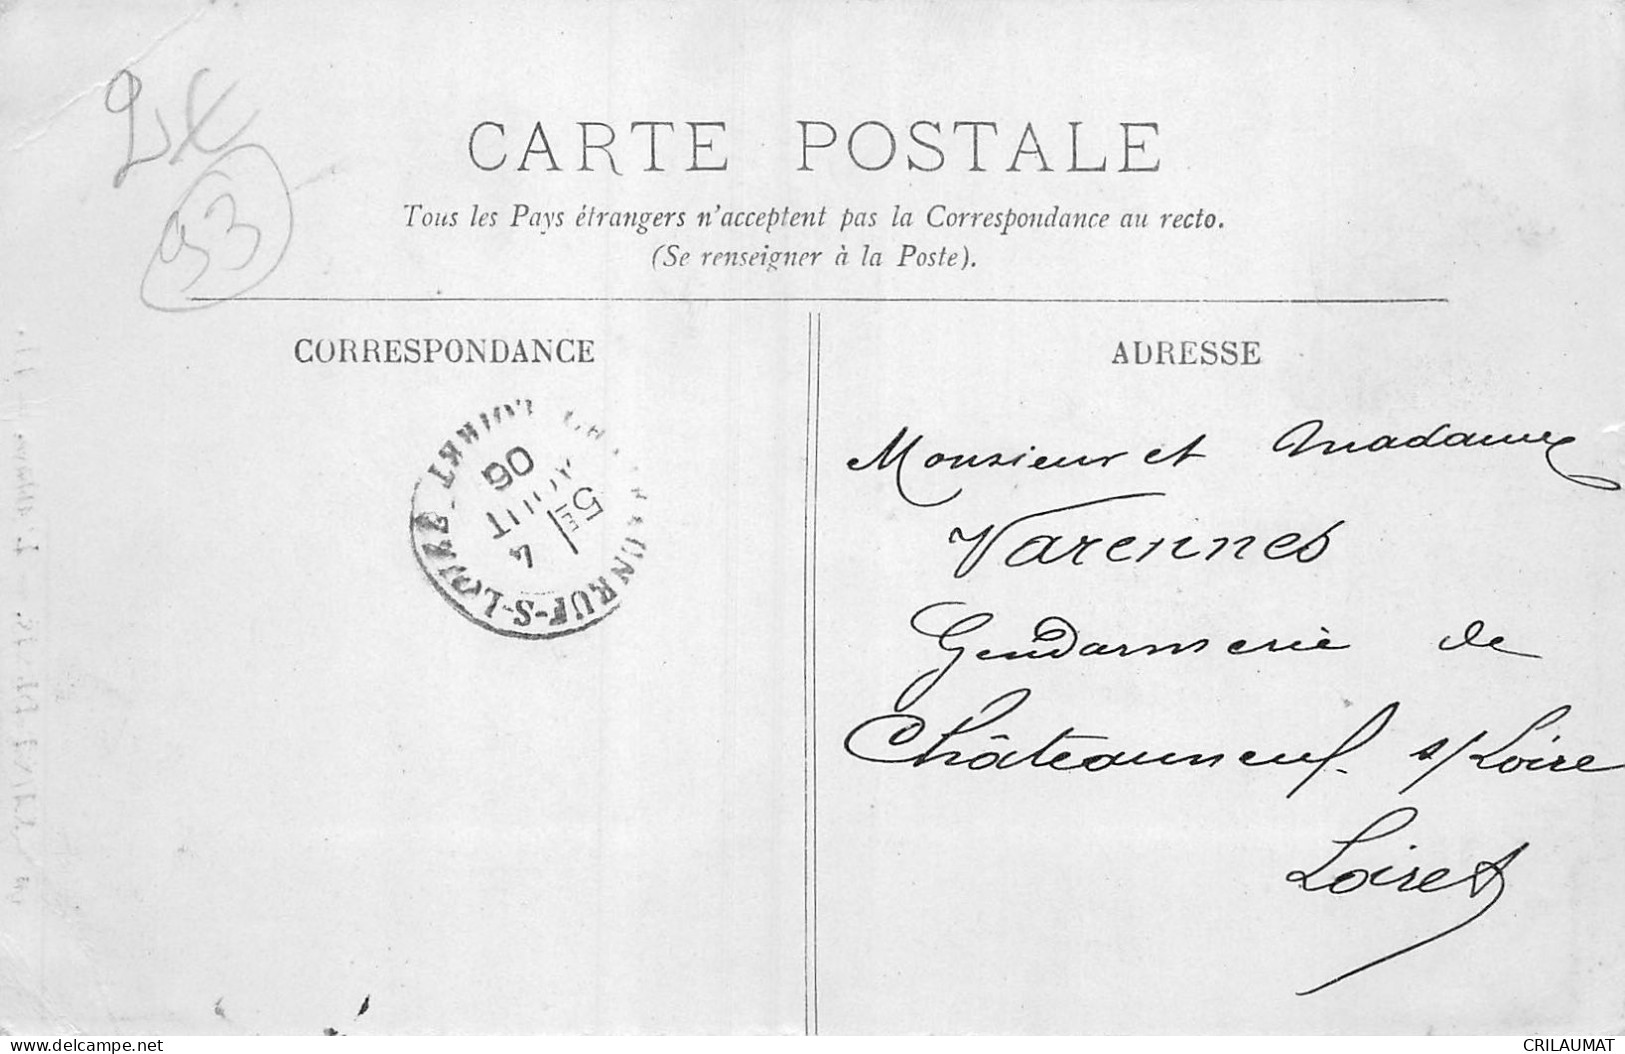 CARTE POSTALE
Tous les Pays étrangers n'acceptent pas la Correspondance au recto.
(Se renseigner à la Poste).
93
CORRESPONDANCE
ADRESSE
4
AOUT
06
Monsieur et Madame
Varennes
Gendarmerie de
Châteauneuf s/Loire
Loiret
www.delcampe.net
CRILAUMAT